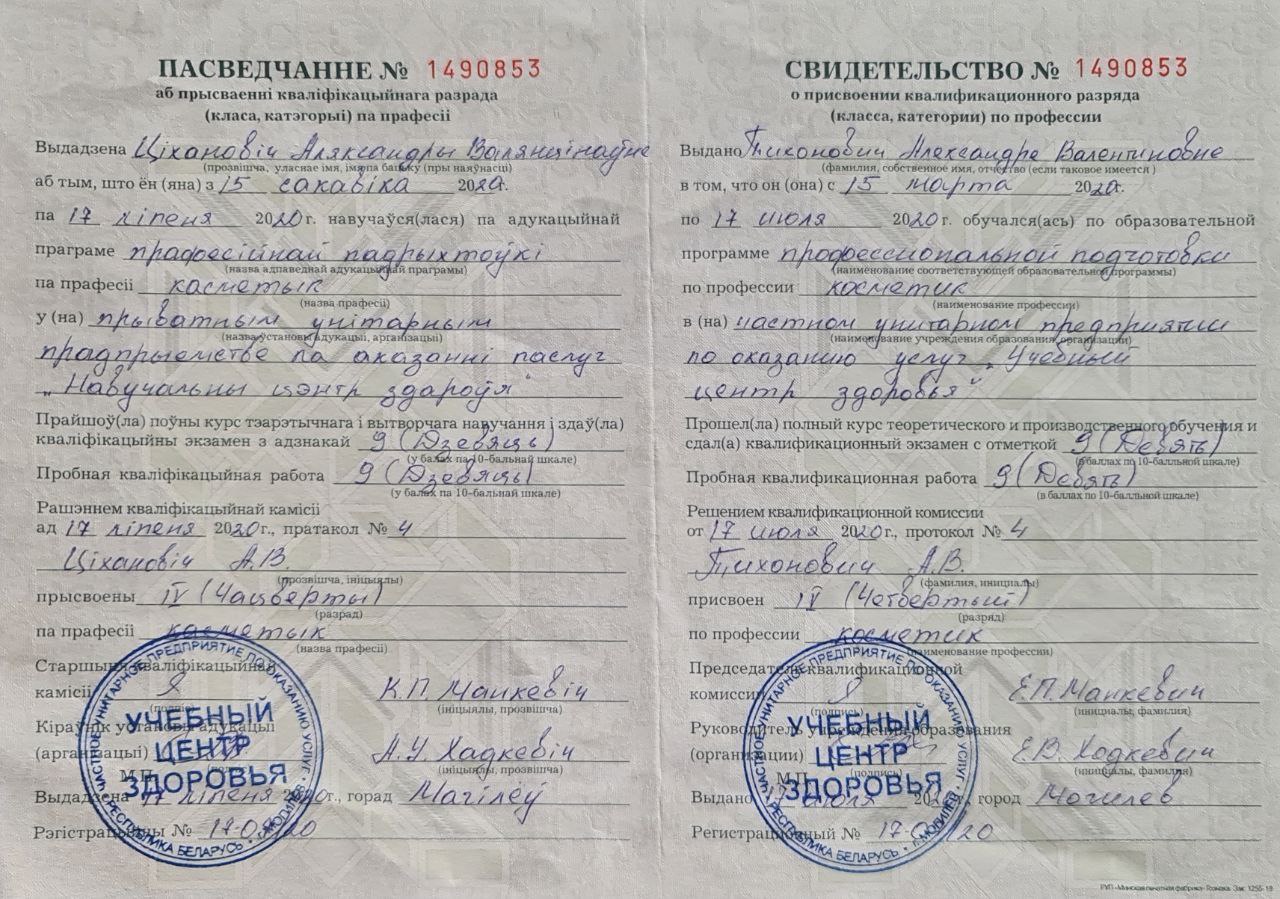 ПАСВЕДЧАННЕ № 1490853
аб прысваенні кваліфікацыйнага разрада
(класа, катэгорыі) па прафесіі
Выдадзена Ціхановіч Аляксандры Валянцінаўне
(прозвішча, уласнае імя, імя па бацьку (пры наяўнасці)
аб тым, што ён (яна) з 15 сакавіка 2020г.
па 17 ліпеня 2020г. навучаўся(лася) па адукацыйнай
праграме прафесійнай падрыхтоўкі
(назва адпаведнай адукацыйнай праграмы)
па прафесіі касметык
(назва прафесіі)
у (на) прыватным унітарным
(назва ўстановы адукацыі, арганізацыі)
прадпрыемстве па аказанні паслуг
"Навучальны цэнтр здароўя"
Прайшоў(ла) поўны курс тэарэтычнага і вытворчага навучання і здаў(ла)
кваліфікацыйны экзамен з адзнакай 9 (Дзевяць)
(у балах па 10-бальнай шкале)
Пробная кваліфікацыйная работа 9 (Дзевяць)
(у балах па 10-бальнай шкале)
Рашэннем кваліфікацыйнай камісіі
ад 17 ліпеня 2020г., пратакол № 4
Ціхановіч А.В.
(прозвішча, ініцыялы)
прысвоены IV (Чацвёрты)
(разрад)
па прафесіі касметык
(назва прафесіі)
Старшыня кваліфікацыйнай
камісіі К.П. Манкевіч
(подпіс) (ініцыялы, прозвішча)
Кіраўнік установы адукацыі
(арганізацыі) А.У. Хадкевіч
(ініцыялы, прозвішча)
М.П.
Выдадзена 17 ліпеня 2020г., горад Магілёў
Рэгістрацыйны №
ЧАСТНОЕ УНИТАРНОЕ ПРЕДПРИЯТИЕ ПО ОКАЗАНИЮ УСЛУГ
УЧЕБНЫЙ
ЦЕНТР
ЗДОРОВЬЯ
РЕСПУБЛИКА БЕЛАРУСЬ • г. МОГИЛЕВ
СВИДЕТЕЛЬСТВО № 1490853
о присвоении квалификационного разряда
(класса, категории) по профессии
Выдано Тихонович Александре Валентиновне
(фамилия, собственное имя, отчество (если таковое имеется )
в том, что он (она) с 15 марта 2020г.
по 17 июля 2020г. обучался(ась) по образовательной
программе профессиональной подготовки
(наименование соответствующей образовательной программы)
по профессии косметик
(наименование профессии)
в (на) частном унитарном предприятии
(наименование учреждения образования, организации)
по оказанию услуг "Учебный
центр здоровья"
Прошел(ла) полный курс теоретического и производственного обучения и
сдал(а) квалификационный экзамен с отметкой 9 (Девять)
(в баллах по 10-балльной шкале)
Пробная квалификационная работа 9 (Девять)
(в баллах по 10-балльной шкале)
Решением квалификационной комиссии
от 17 июля 2020г., протокол № 4
Тихонович А.В.
(фамилия, инициалы)
присвоен IV (Четвертый)
(разряд)
по профессии косметик
(наименование профессии)
Председатель квалификационной
комиссии Е.П. Манкевич
(подпись) (инициалы, фамилия)
Руководитель учреждения образования
(организации) Е.В. Ходкевич
(подпись) (инициалы, фамилия)
М.П.
Выдано 17 июля 2020г., город Могилев
Регистрационный №
ЧАСТНОЕ УНИТАРНОЕ ПРЕДПРИЯТИЕ ПО ОКАЗАНИЮ УСЛУГ
УЧЕБНЫЙ
ЦЕНТР
ЗДОРОВЬЯ
РЕСПУБЛИКА БЕЛАРУСЬ • г. МОГИЛЕВ
РУП «Минская печатная фабрика» Гознака. Зак. 1255-19